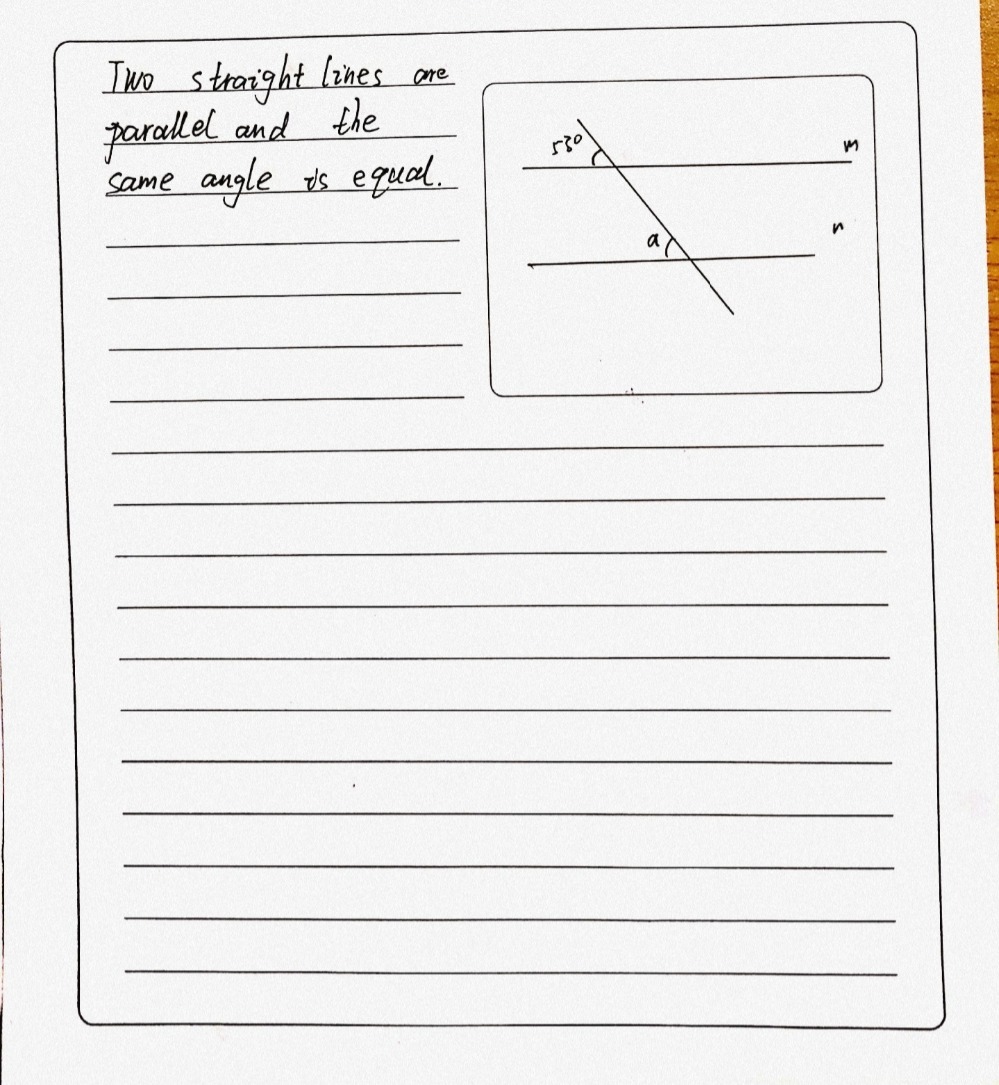 Two straight lines are
parallel and the
same angle is equal.
53°
m
a
n